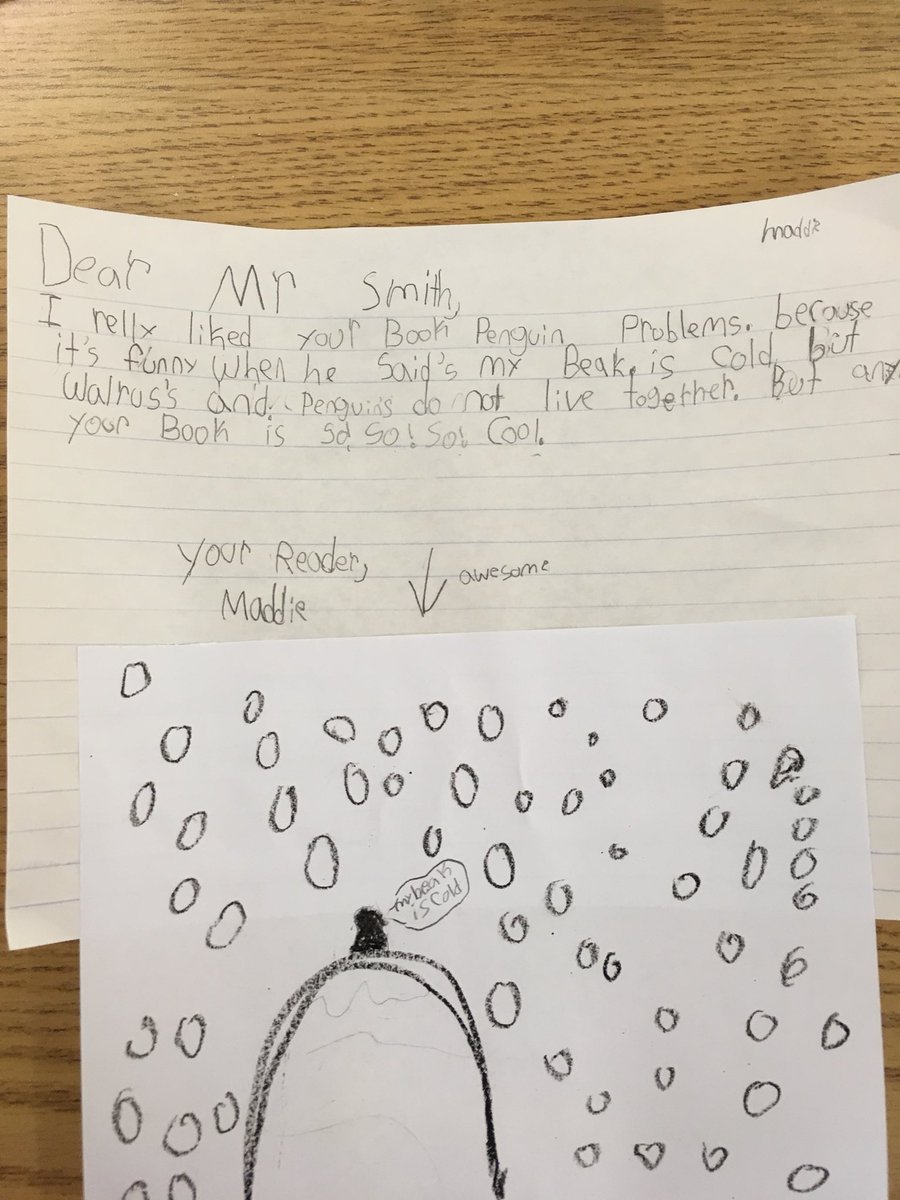 maddie
Dear Mr Smith,
I relly liked your Book Penguin Problems. because
it's funny When he Said's my Beak, is cold, but
Walrus's and Penguins do not live together. But any
your Book is so so! So! Cool.
Your Reader,
Maddie
awesome
my beak
is cold